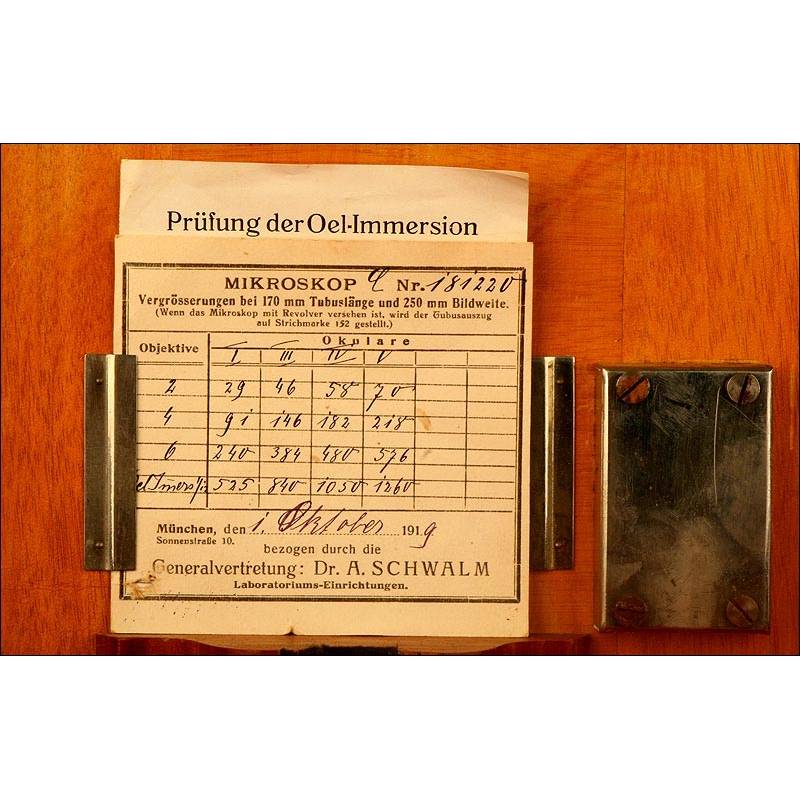 Prüfung der Oel-Immersion
MIKROSKOP Nr. 181220
Vergrösserungen bei 170 mm Tubuslänge und 250 mm Bildweite.
(Wenn das Mikroskop mit Revolver versehen ist, wird der Tubusauszug
auf Strichmarke 152 gestellt.)
Objektive Okulare
I III IV V
2 29 46 58 70
4 91 146 182 218
6 240 384 480 576
525 840 1050 1260
München, den 1. Oktober 1919
Sonnenstraße 10.
bezogen durch die
Generalvertretung: Dr. A. SCHWALM
Laboratoriums-Einrichtungen.